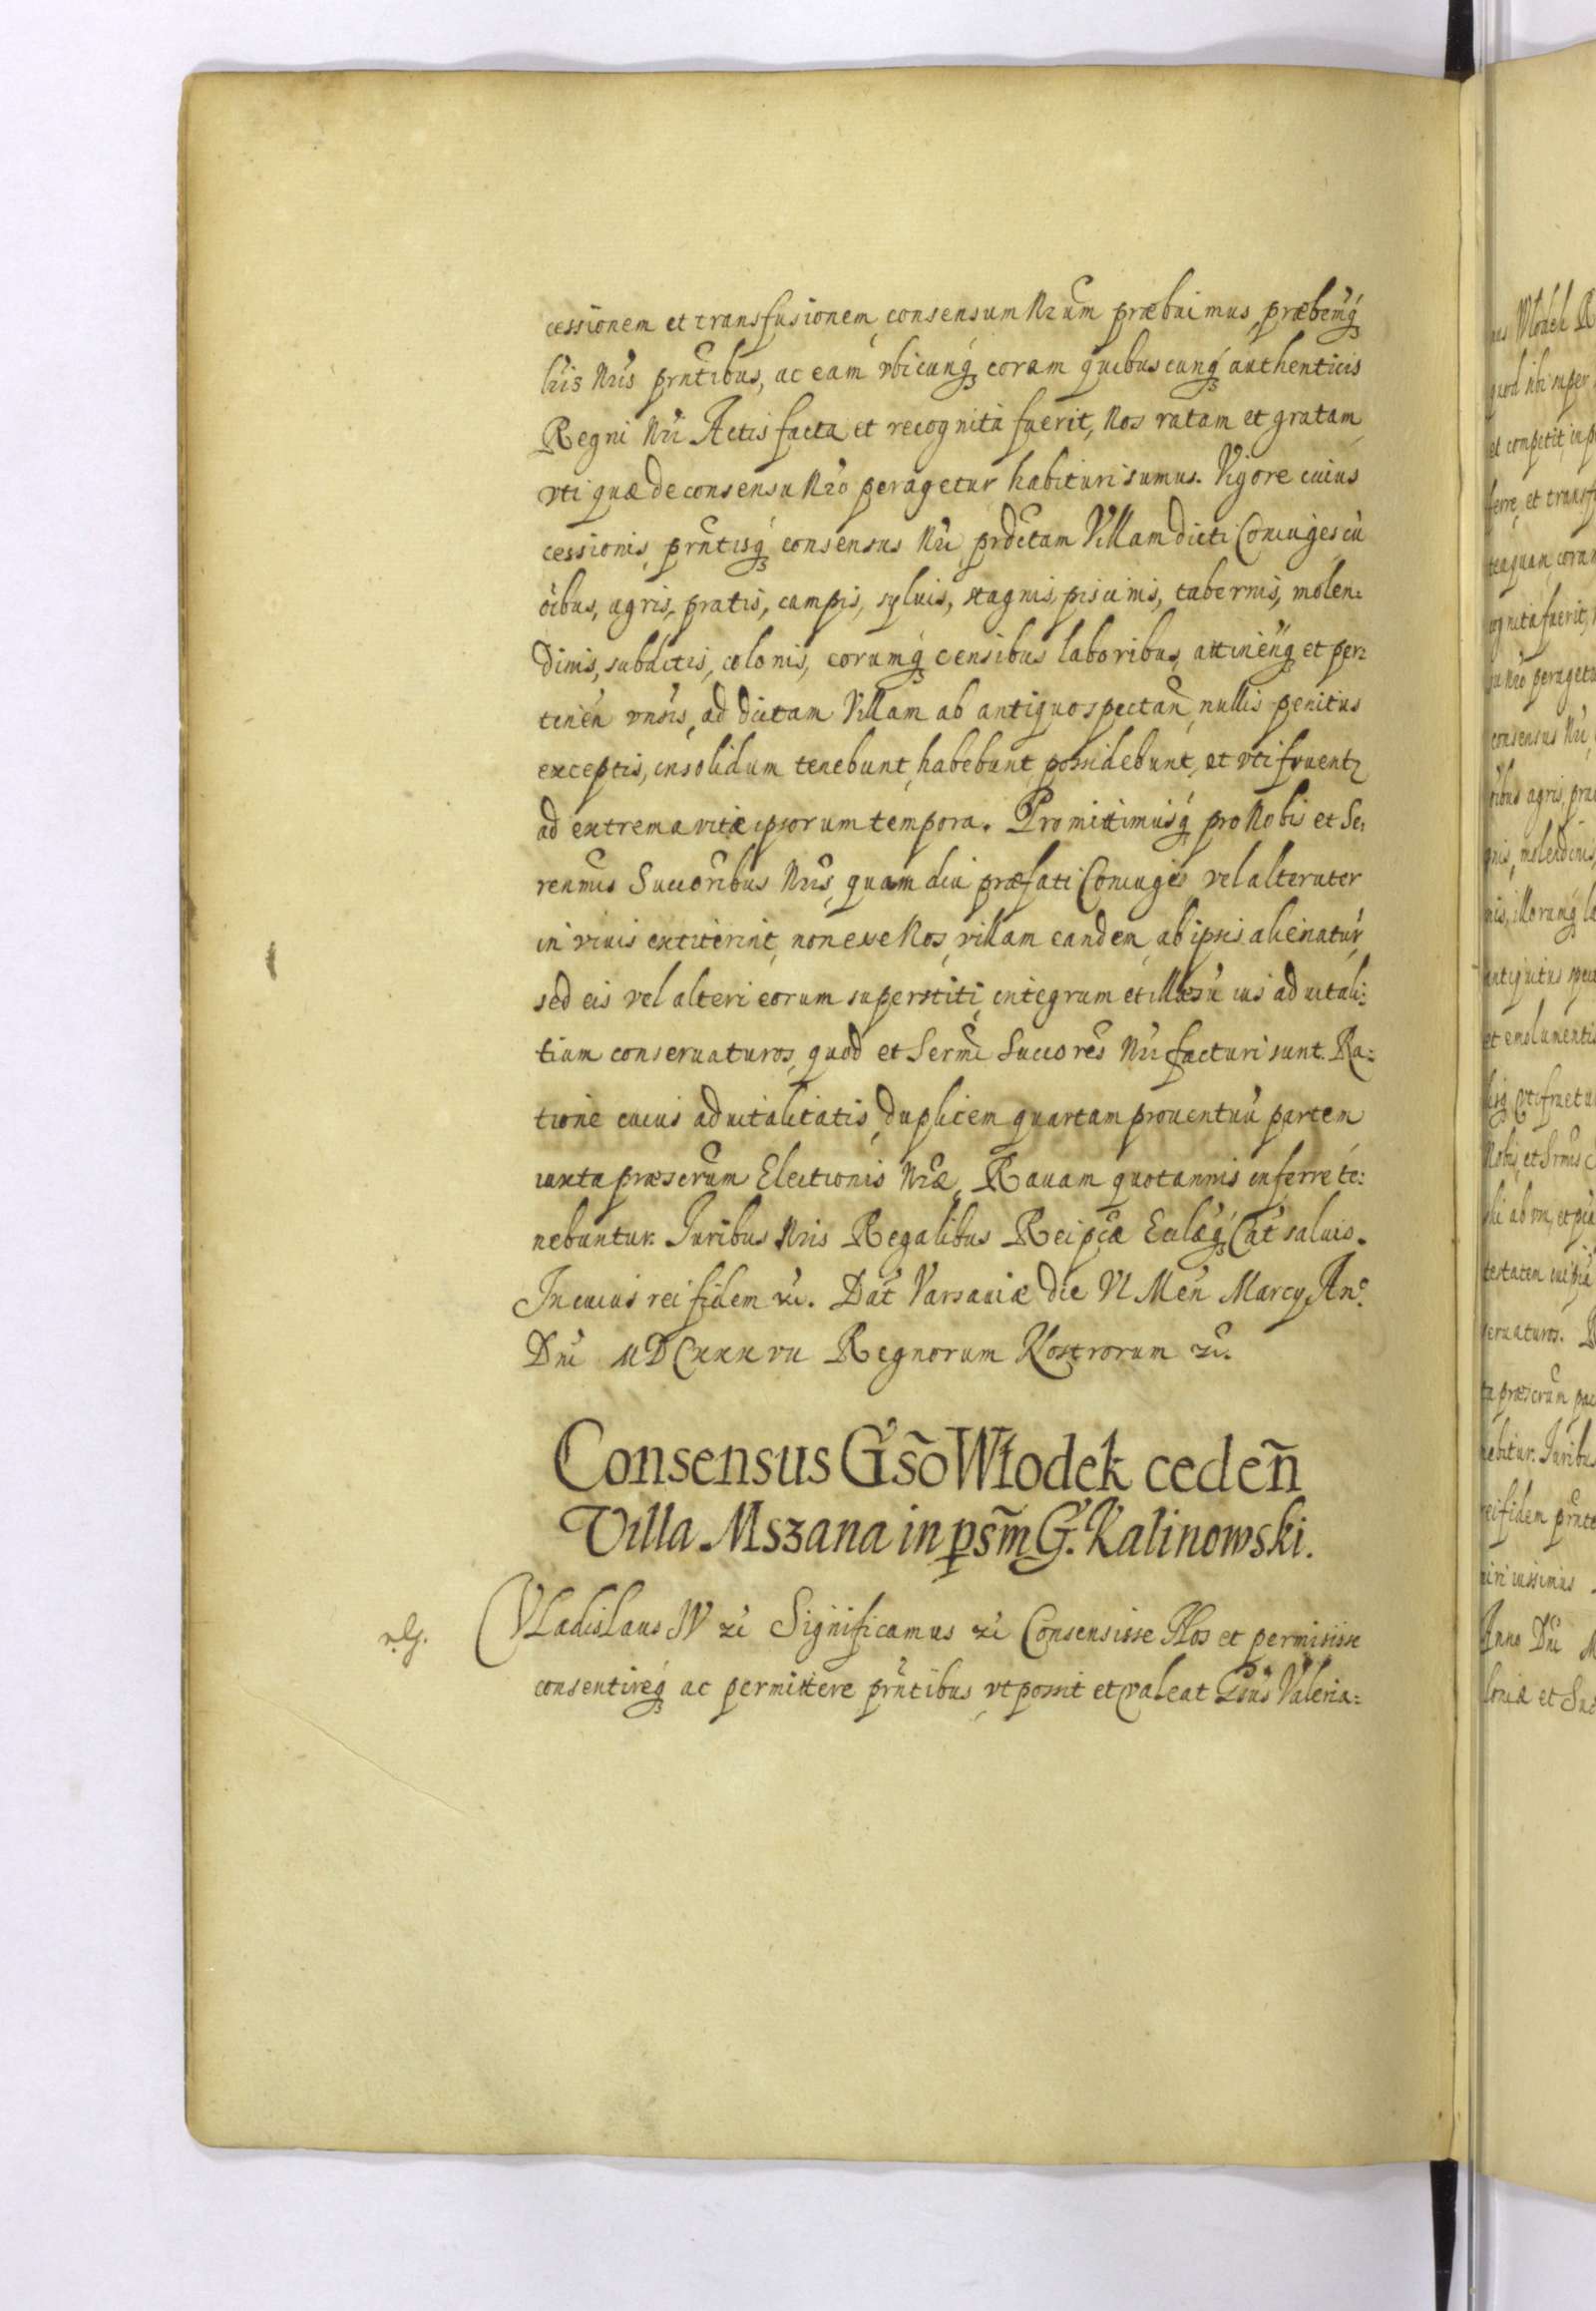 cessionem et transfusionem, consensum Nrum præbuimus, præbemusq́
lris Nris prntibus, ac eam vbicunq́ coram quibuscunq́ authenticis
Regni Nri Actis facta et recognita fuerit, Nos ratam et gratam
vti quæ de consensu Nro peragetur habituri sumus. Vigore cuius
cessionis, prntisq́ consensus Nri, prdctam Villam dicti Coniuges cũ
oibus, agris, pratis, campis, syluis, stagnis, piscinis, tabernis, molen:
dinis, subditis, colonis, eorumq́ censibus laboribus, attineñq́ et per:
tineñ vnsis, ad dictam Villam ab antiquo spectañ, nullis penitus
exceptis, in solidum tenebunt, habebunt, possidebunt, et vti fruentr
ad extrema vitæ ipsorum tempora. Promittimusq́ pro Nobis et Se:
renmis Succoribus Nris, quam diu præfati Coniuges, vel alteruter
in viuis extiterint, non esse Nos, villam eandem, ab ipsis alienatur̃,
sed eis vel alteri eorum superstiti, integrum et illæsũ ius aduitali:
tium conseruaturos, quod et Sermi Succores Nri facturi sunt. Ra:
tione cuius aduitalitatis, duplicem quartam prouentuũ partem
iuxta præscrum Electionis Nræ, Rauam quotannis inferre te:
nebuntur. Iuribus Nris Regalibus Reipcæ Ecclæq́ Cat̃ saluis.
In cuius rei fidem zc. Dat̃ Varsauiæ die VI Meñ Marcy Ano
Dni MDCxxxvii Regnorum Nostrorum zc.
Consensus Gs̃o Włodek cedeñ
Villa Mszana in ps̃m G. Kalinowski.
Vladislaus IV zc Significamus zc Consensisse Nos et permisisse
consentireq́ ac permittere prntibus, vt possit et valeat Gsus Valeria: